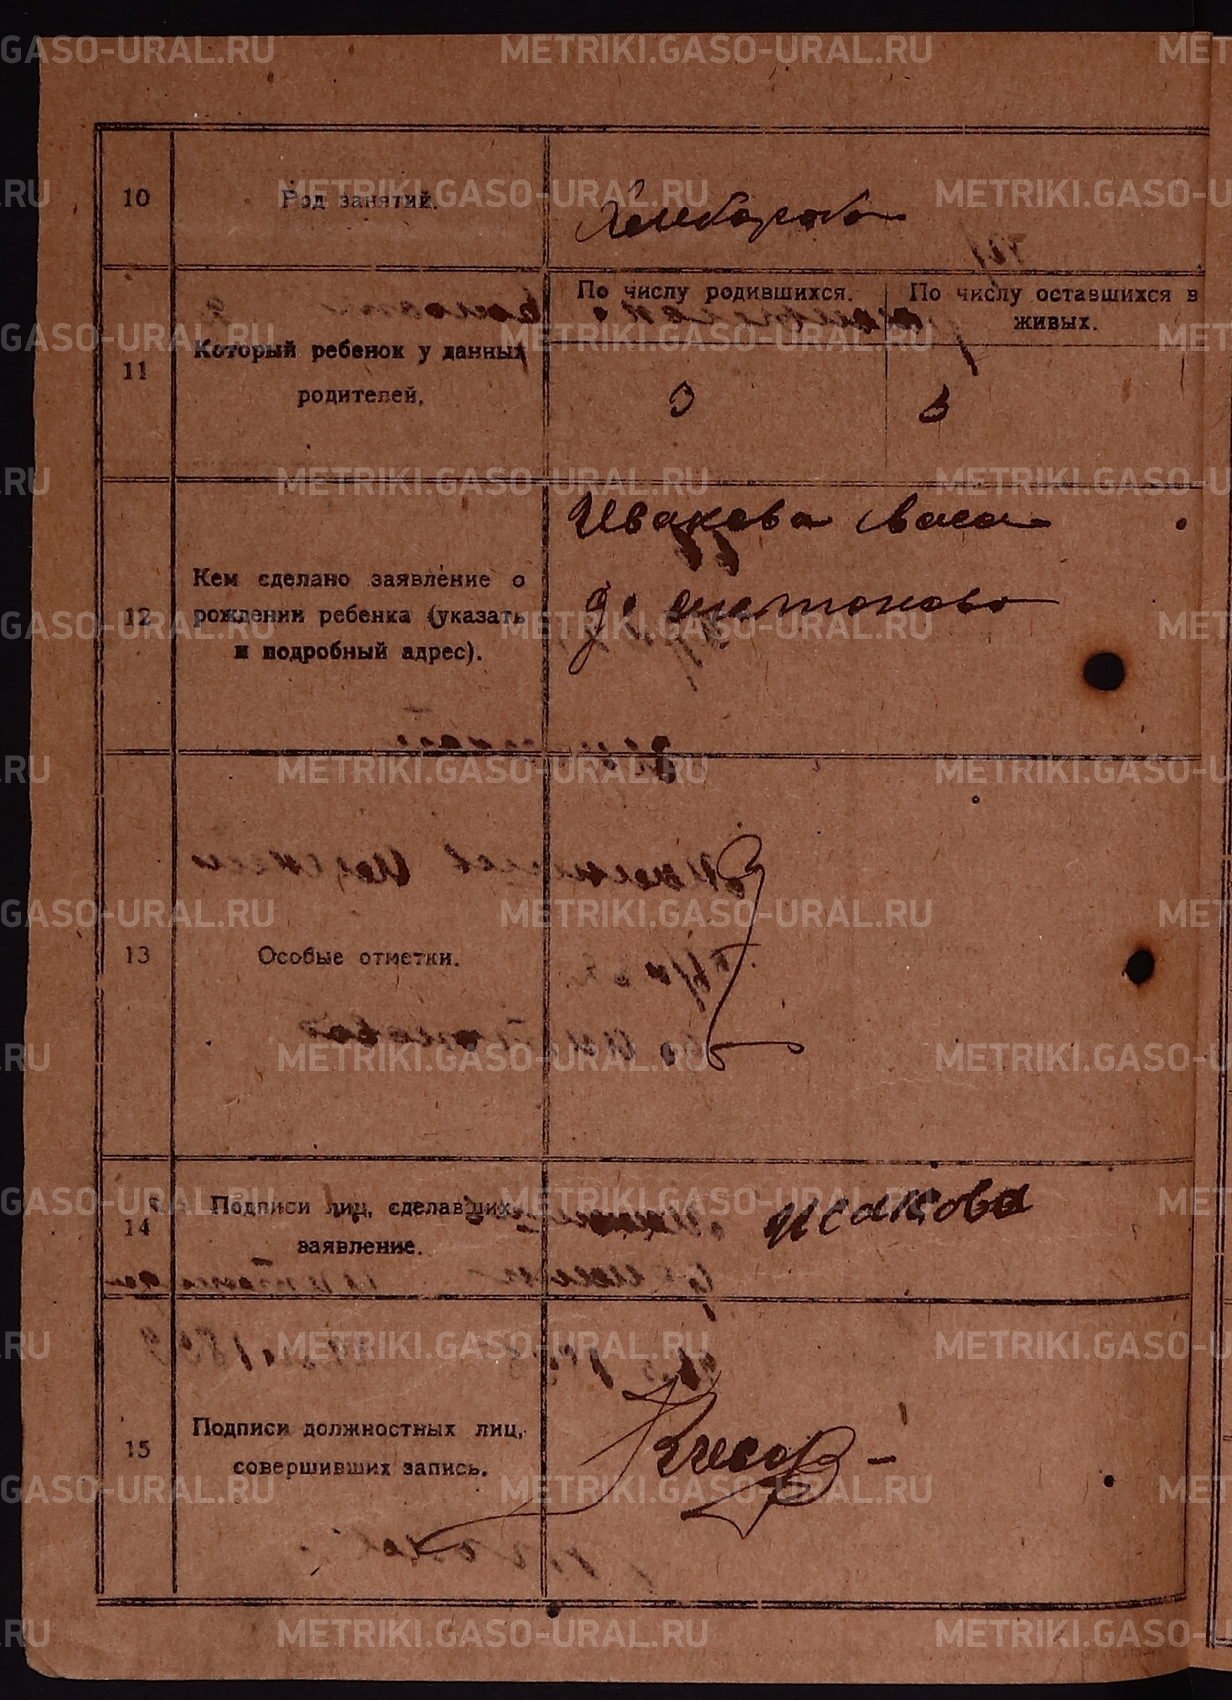 10
Род занятий.
Хлебороб
11
Который ребенок у данных
родителей.
По числу родившихся.
По числу оставшихся в
живых.
3
3
12
Кем сделано заявление о
рождении ребенка (указать
и подробный адрес).
Исакова
д.
13
Особые отметки.
14
Подписи лиц, сделавших
заявление.
Исакова
15
Подписи должностных лиц,
совершивших запись.
METRIKI.GASO-URAL.RU